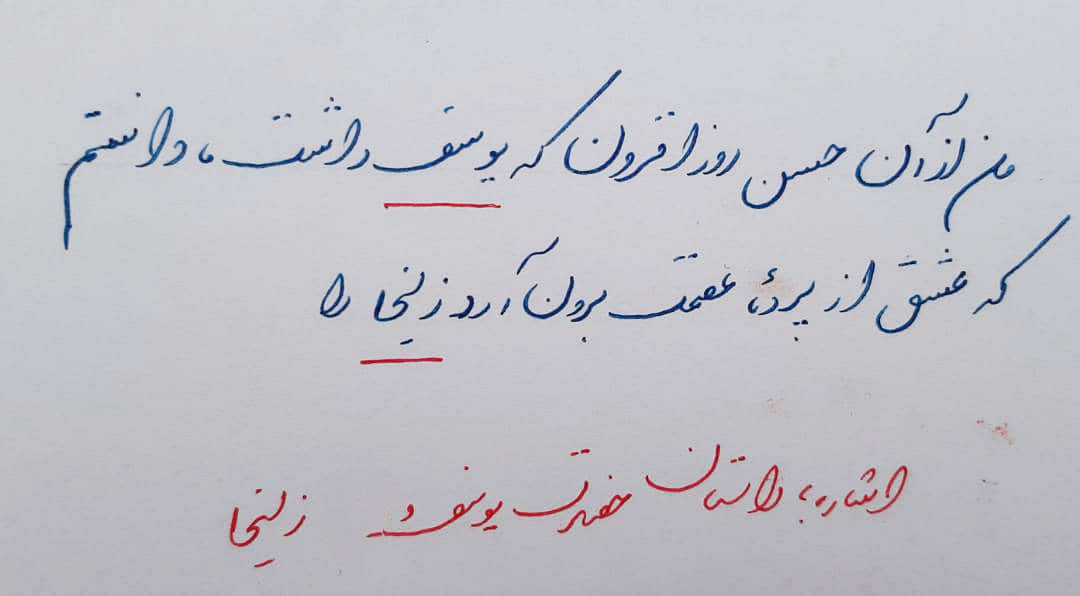 من از آن حسن روز افزون که یوسف داشت، دانستم
که عشق از پردهٔ عصمت برون آرد زلیخا را
اشاره به داستان حضرت یوسف و زلیخا